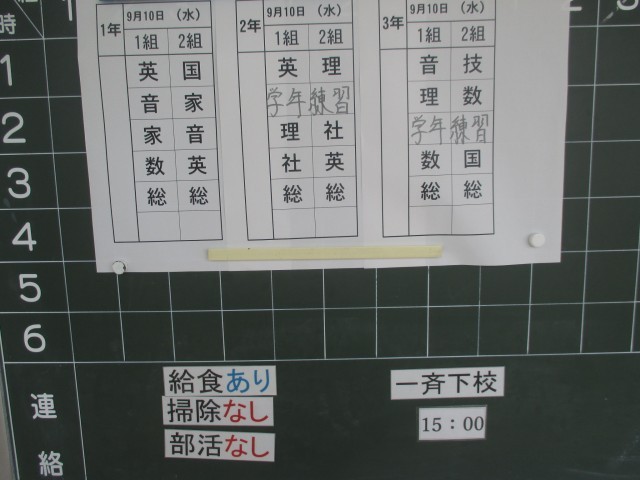 時
1
2
3
4
5
6
連絡
1年 9月10日 （水）
1組 2組
英 国
音 家
家 音
数 英
総 総
2年 9月10日 （水）
1組 2組
英 理
学年練習
理 社
社 英
総 総
3年 9月10日 （水）
1組 2組
音 技
理 数
学年練習
数 国
総 総
給食あり
掃除なし
部活なし
一斉下校
15：00